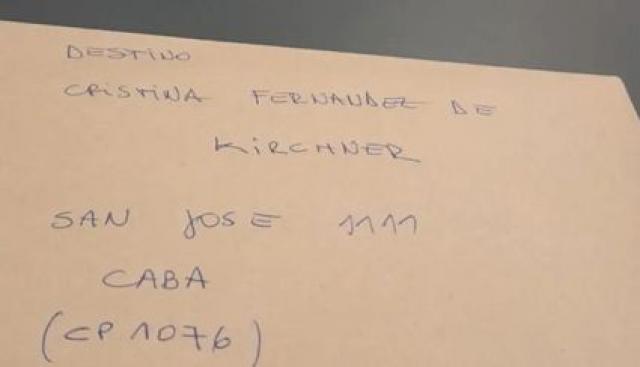 DESTINO
CRISTINA FERNANDEZ DE
KIRCHNER
SAN JOSE 1111
CABA
(CP 1076)